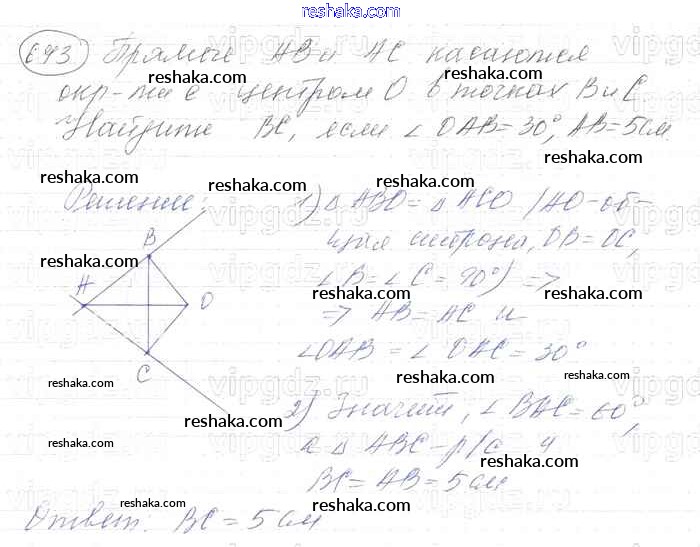 reshaka.com
693 Прямые AB и AC касаются
reshaka.com reshaka.com
окр-ти с центром O в точках B и C.
reshaka.com
Найдите BC, если ∠OAB = 30°, AB = 5 см
reshaka.com reshaka.com
Решение:
1) △ABO = △ACO /AO-об-
щая сторона, OB = OC,
∠B = ∠C = 90°) =>
=> AB = AC и
∠OAB = ∠OAC = 30°
B
A
O
C
reshaka.com
2) Значит, ∠BAC = 60°,
а △ABC - р/с и
BC = AB = 5 см
Ответ: BC = 5 см
reshaka.com
vipgdz.ru